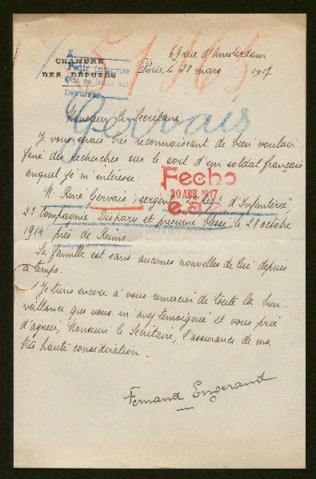 CHAMBRE
DES DÉPUTÉS
69 rue d'Amsterdam
Paris, le 28 mars 1917.
51961
Devolver
Gervais
Monsieur le Secrétaire,
Je vous serais très reconnaissant de bien vouloir
faire des recherches sur le sort d'un soldat français
auquel je m'intéresse.
M. René Gervais, sergent d'Infanterie
2e compagnie Disparu et présumé blessé le 28 octobre
1914, près de Reims.
Fecho
20 ABR. 1917
Sa famille est sans aucunes nouvelles de lui depuis
ce temps.
Je tiens encore à vous remercier de toute la bien-
veillance que vous m'avez témoignée et vous prie
d'agréer, Monsieur le Secrétaire, l'assurance de ma
très haute considération.
Fernand Engerand